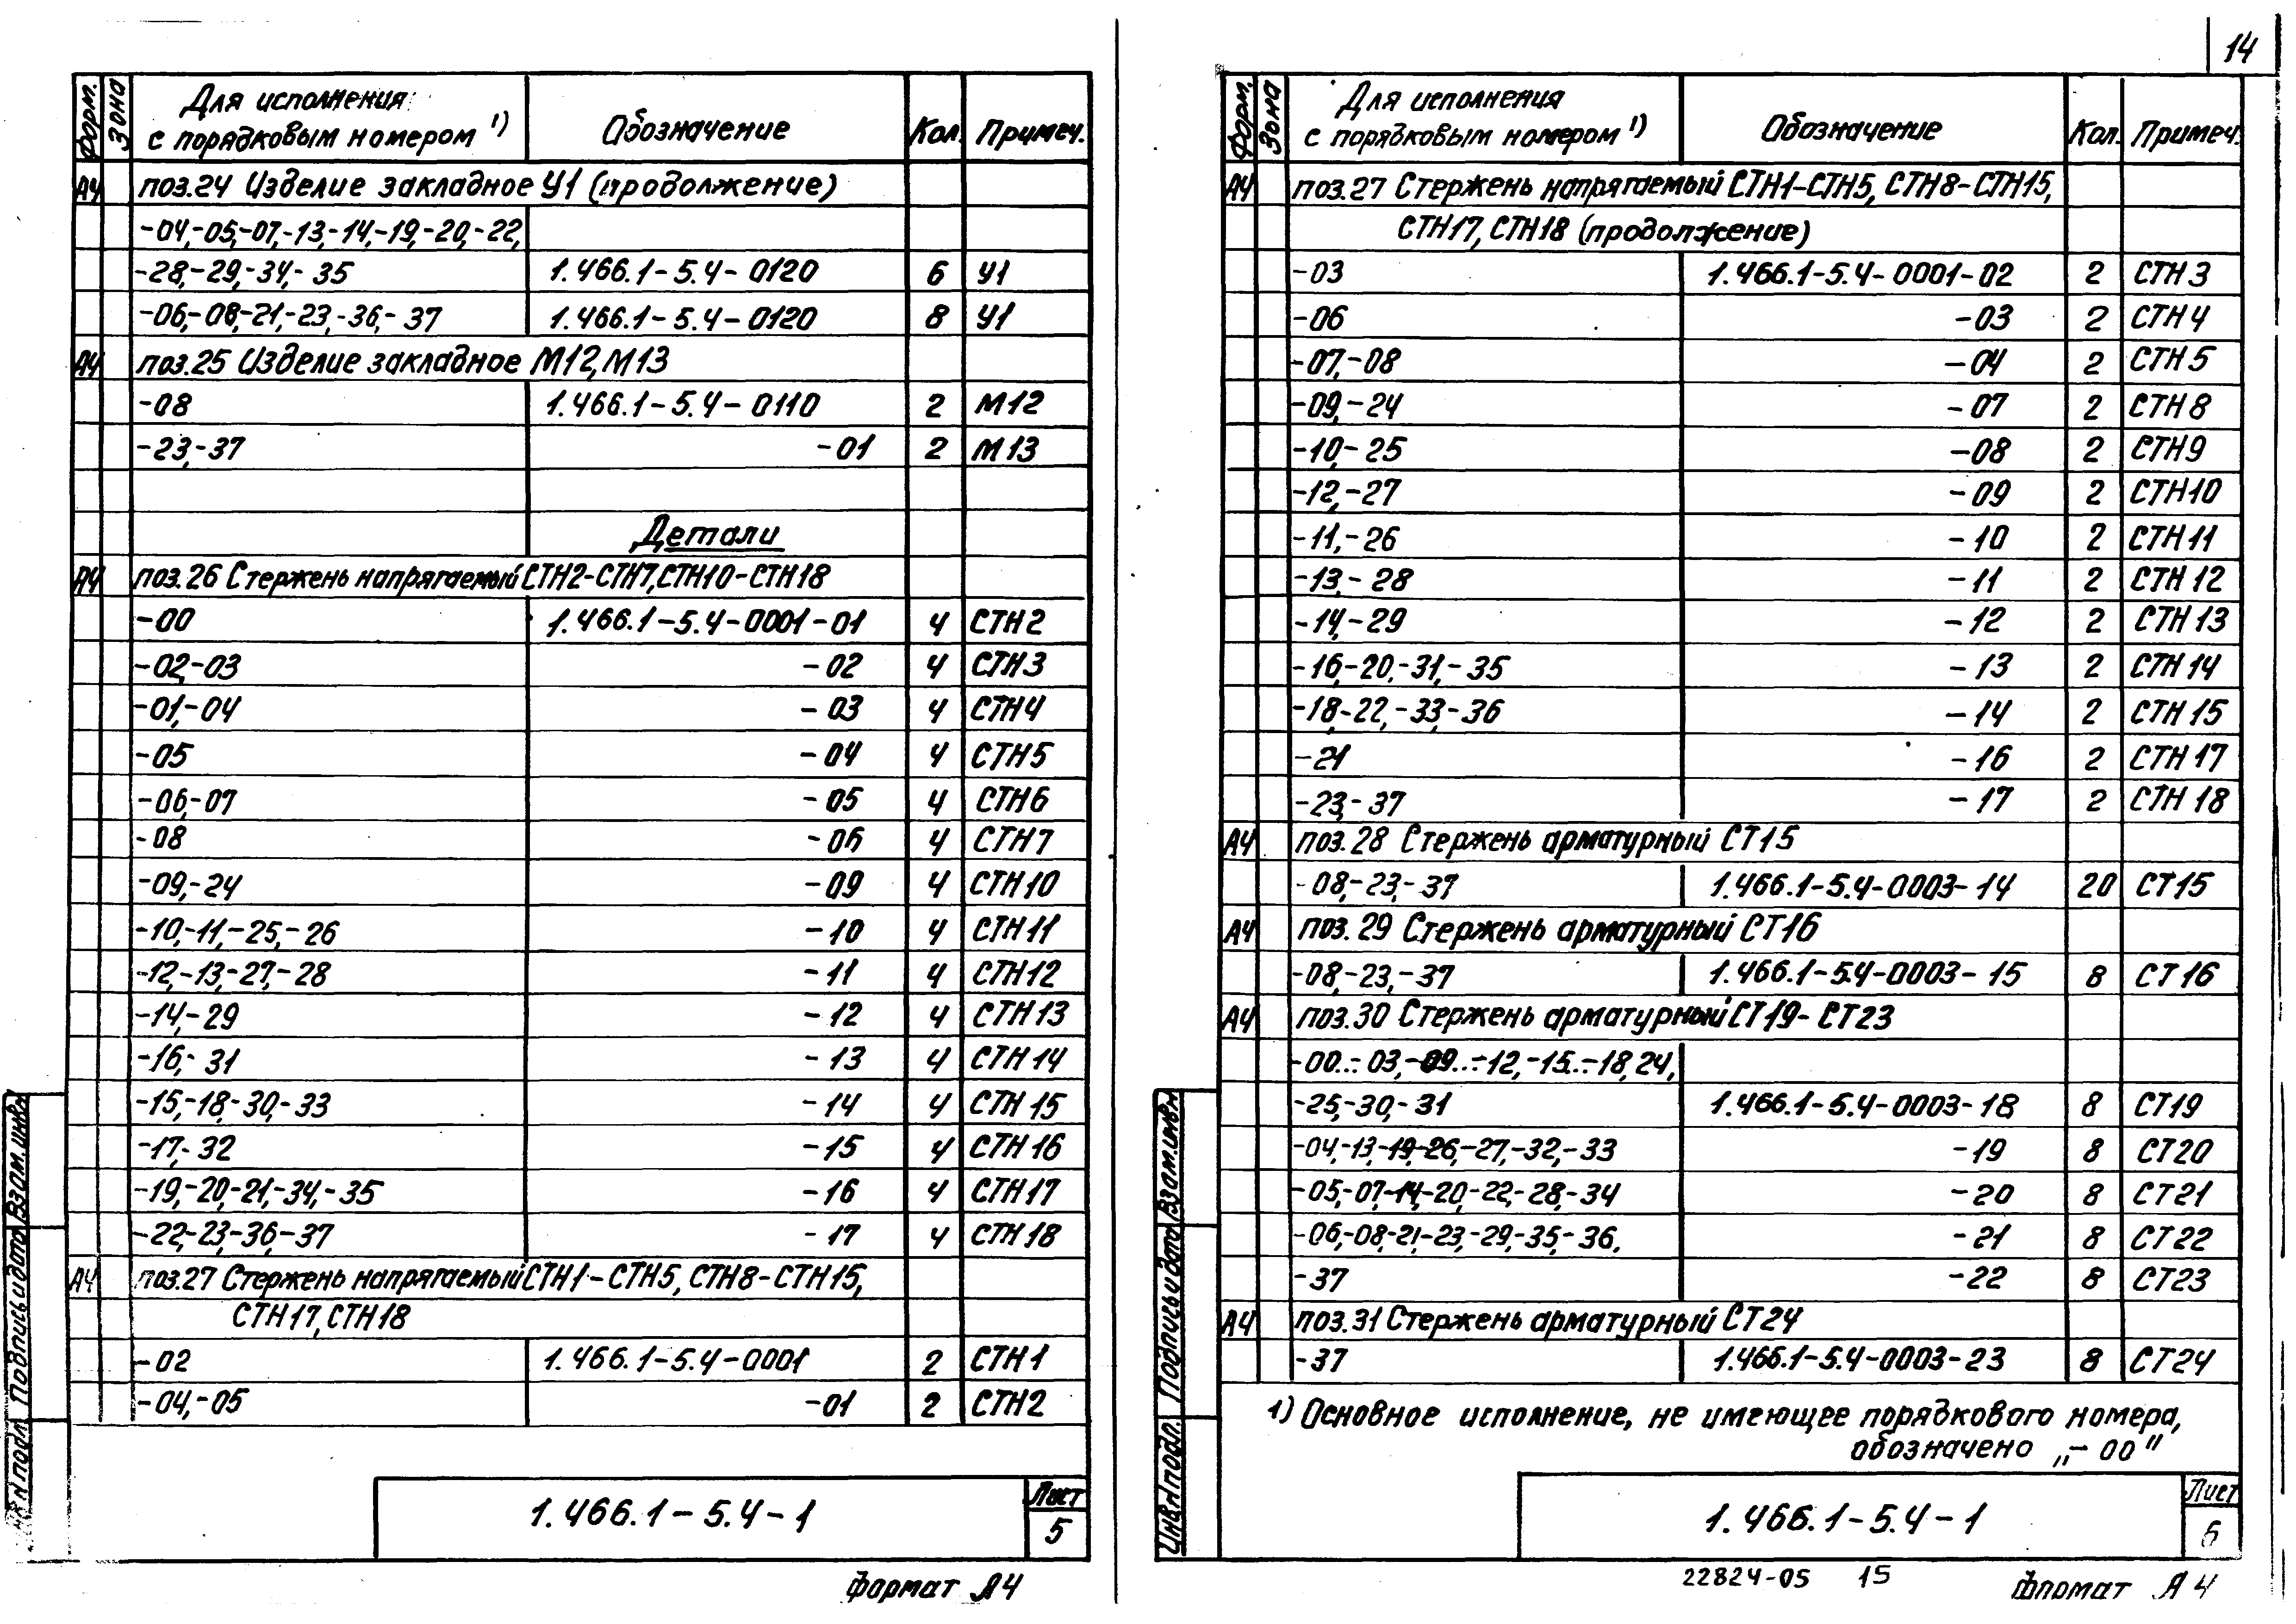 14
Форм.
Зона
Для исполнения
с порядковым номером 1)
Обозначение
Кол.
Примеч.
А4 поз.24 Изделие закладное У1 (продолжение)
-04,-05,-07,-13,-14,-19,-20,-22,
-28,-29,-34,-35 1.466.1-5.4-0120 6 У1
-06,-08,-21,-23,-36,-37 1.466.1-5.4-0120 8 У1
А4 поз.25 Изделие закладное М12,М13
-08 1.466.1-5.4-0110 2 М12
-23,-37 -01 2 М13
Детали
А4 поз.26 Стержень напрягаемый СТН2-СТН7,СТН10-СТН18
-00 1.466.1-5.4-0001-01 4 СТН2
-02,-03 -02 4 СТН3
-01,-04 -03 4 СТН4
-05 -04 4 СТН5
-06,-07 -05 4 СТН6
-08 -06 4 СТН7
-09,-24 -09 4 СТН10
-10,-11,-25,-26 -10 4 СТН11
-12,-13,-27,-28 -11 4 СТН12
-14,-29 -12 4 СТН13
-16,-31 -13 4 СТН14
-15,-18,-30,-33 -14 4 СТН15
-17,-32 -15 4 СТН16
-19,-20,-21,-34,-35 -16 4 СТН17
-22,-23,-36,-37 -17 4 СТН18
А4 поз.27 Стержень напрягаемый СТН1-СТН5, СТН8-СТН15,
СТН17, СТН18
-02 1.466.1-5.4-0001 2 СТН1
-04,-05 -01 2 СТН2
Взам.инв.N
Подпись и дата
N подл.
1.466.1-5.4-1
Лист
5
Формат А4
Форм.
Зона
Для исполнения
с порядковым номером 1)
Обозначение
Кол.
Примеч.
А4 поз.27 Стержень напрягаемый СТН1-СТН5, СТН8-СТН15,
СТН17, СТН18 (продолжение)
-03 1.466.1-5.4-0001-02 2 СТН3
-06 -03 2 СТН4
-07,-08 -04 2 СТН5
-09,-24 -07 2 СТН8
-10,-25 -08 2 СТН9
-12,-27 -09 2 СТН10
-11,-26 -10 2 СТН11
-13,-28 -11 2 СТН12
-14,-29 -12 2 СТН13
-16,-20,-31,-35 -13 2 СТН14
-18,-22,-33,-36 -14 2 СТН15
-21 -16 2 СТН17
-23,-37 -17 2 СТН18
А4 поз.28 Стержень арматурный СТ15
-08,-23,-37 1.466.1-5.4-0003-14 20 СТ15
А4 поз.29 Стержень арматурный СТ16
-08,-23,-37 1.466.1-5.4-0003-15 8 СТ16
А4 поз.30 Стержень арматурный СТ19-СТ23
-00...-03,-09...-12,-15...-18,24,
-25,-30,-31 1.466.1-5.4-0003-18 8 СТ19
-04,-13,-19,-26,-27,-32,-33 -19 8 СТ20
-05,-07,-14,-20,-22,-28,-34 -20 8 СТ21
-06,-08,-21,-23,-29,-35,-36, -21 8 СТ22
-37 -22 8 СТ23
А4 поз.31 Стержень арматурный СТ24
-37 1.466.1-5.4-0003-23 8 СТ24
1) Основное исполнение, не имеющее порядкового номера,
обозначено „-00"
Взам.инв.N
Подпись и дата
Инв.N подл.
1.466.1-5.4-1
Лист
6
22824-05 15
Формат А4